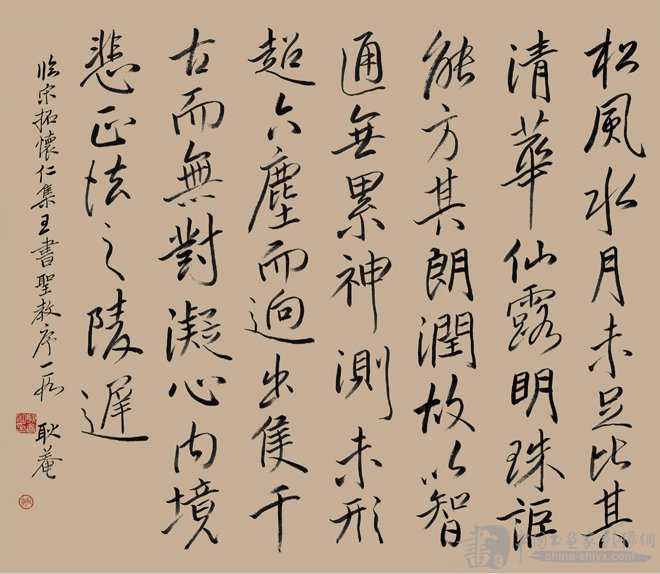 松風水月未足比其
清華仙露明珠詎
能方其朗潤故以智
通無累神測未形
超六塵而迥出隻千
古而無對凝心內境
悲正法之陵遲
臨宋拓懷仁集王書聖教序一段 耿菴
china-shjyx.com